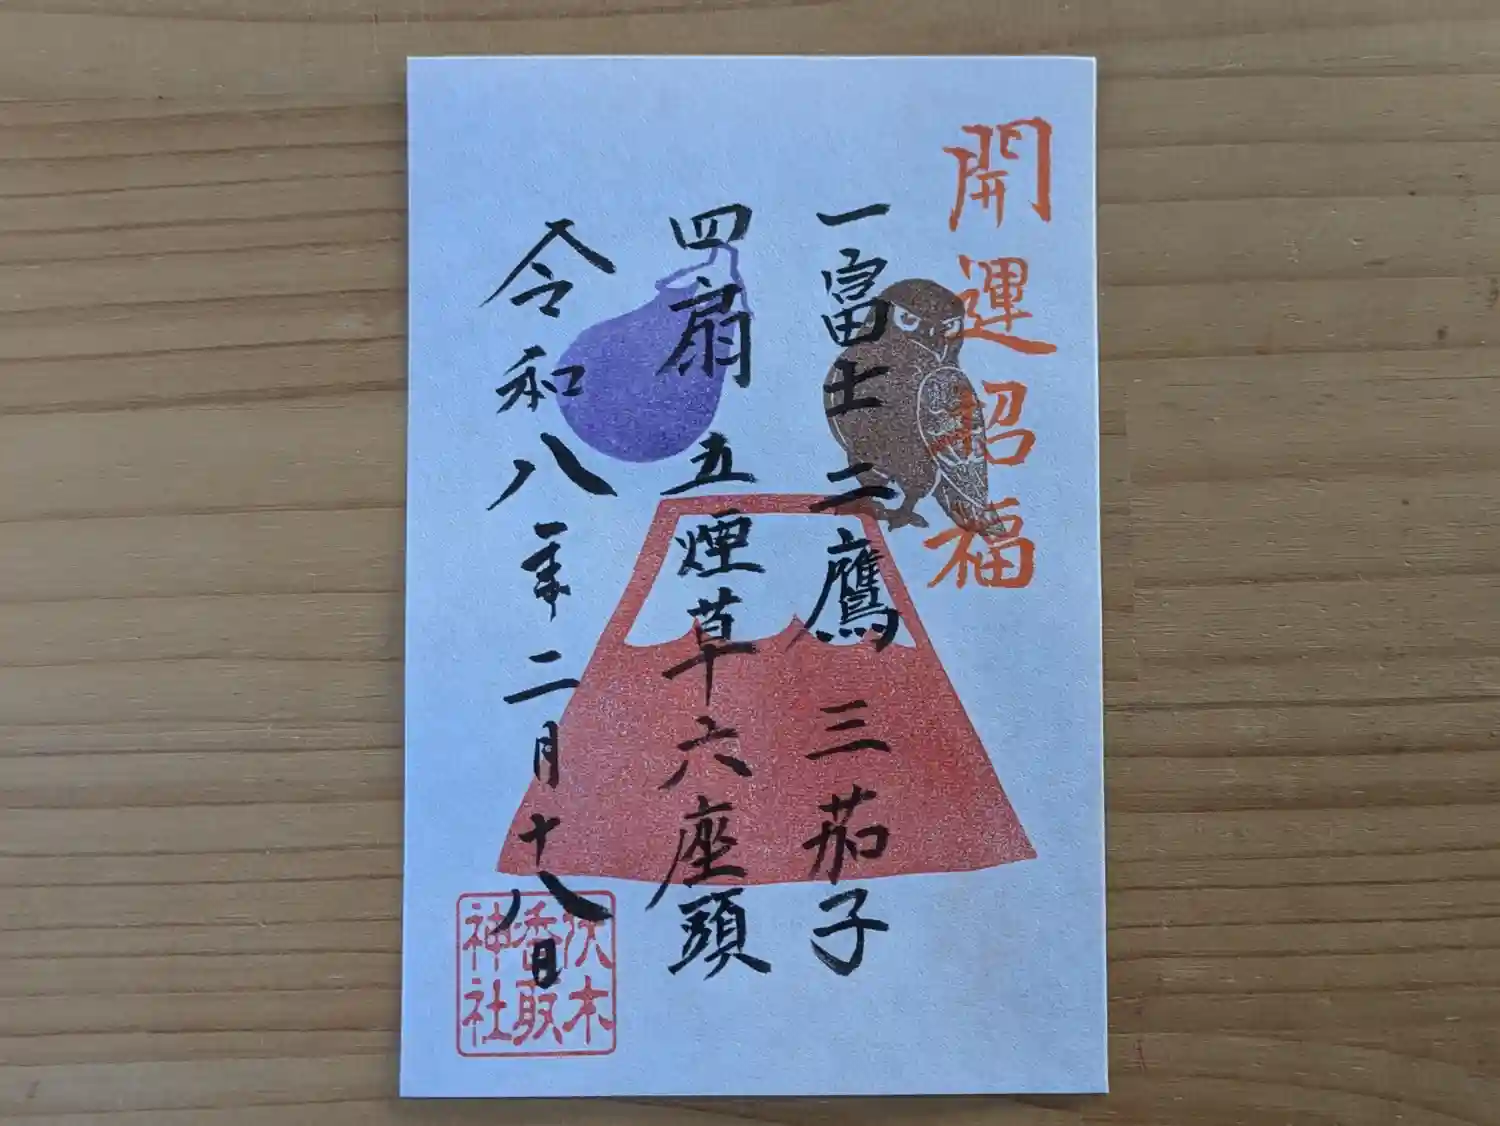 開運招福
一富士二鷹 三茄子
四扇 五煙草六座頭
令和八年二月十八日
伏木
香取
神社